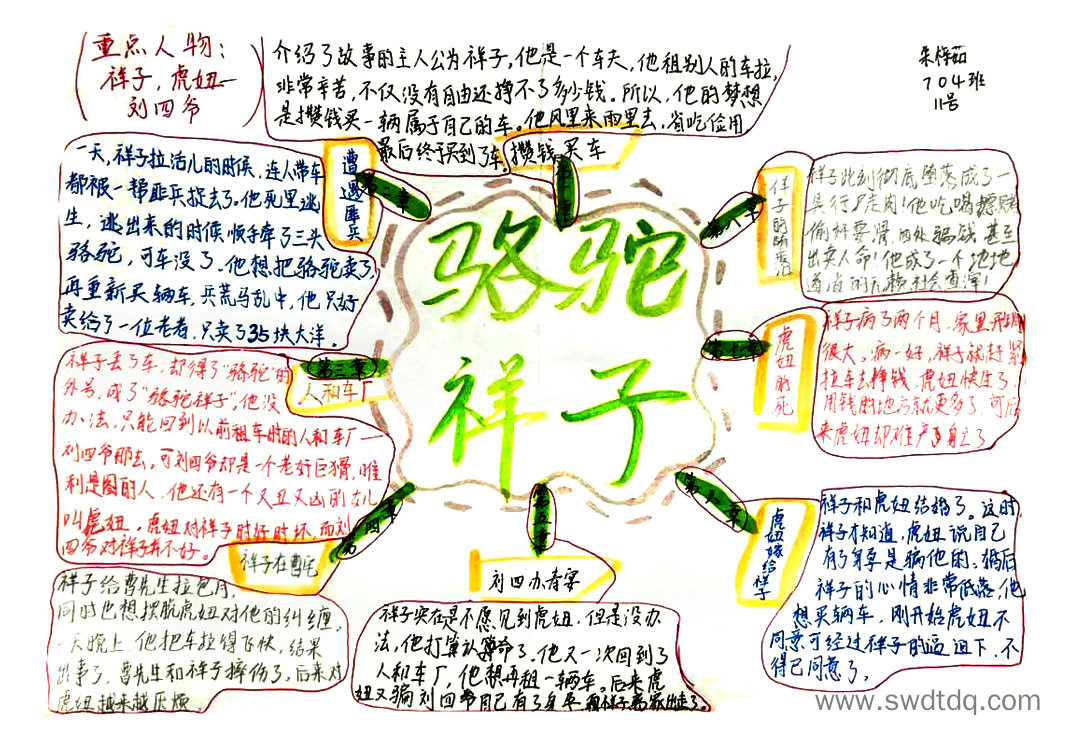 重点人物：
祥子，虎妞
刘四爷
介绍了故事的主人公为祥子，他是一个车夫，他租别人的车拉，
非常辛苦，不仅没有自由还挣不了多少钱。所以，他的梦想
是攒钱买一辆属于自己的车。他风里来雨里去，省吃俭用
最后终于买到了车。
攒钱买车
704班
11号
骆驼
祥子
第二章
遭遇匪兵
一天，祥子拉活儿的时候，连人带车
都被一帮匪兵捉去了。他死里逃
生，逃出来的时候顺手牵了三头
骆驼，可车没了。他想把骆驼卖了，
再重新买辆车，兵荒马乱中，他只好
卖给了一位老者，只卖了35块大洋。
第三章
人和车厂
祥子丢了车，却得了"骆驼"的
外号，成了"骆驼祥子"。他没
办法，只能回到以前租车时的人和车厂—
刘四爷那去。可刘四爷却是一个老奸巨猾，唯
利是图的人，他还有一个又丑又凶的女儿
叫虎妞，虎妞对祥子时好时坏，而刘
四爷对祥子并不好。
第四章
祥子在曹宅
祥子给曹先生拉包月，
同时也想摆脱虎妞对他的纠缠。
一天晚上，他把车拉得飞快，结果
出事了，曹先生和祥子摔伤了。后来对
虎妞越来越厌烦。
第五章
刘四办寿宴
祥子实在是不愿见到虎妞，但是没办
法，他打算认算命了。他又一次回到了
人和车厂，他想再租一辆车。后来虎
妞又骗刘四爷自己有了身孕，
第六章
虎妞嫁给祥子
祥子和虎妞结婚了。这时，
祥子才知道，虎妞说自己
有了身孕是骗他的。婚后
祥子的心情非常低落，他
想买辆车，刚开始虎妞不
同意可经过祥子的逼迫下，不
得已同意了。
第七章
虎妞的死
祥子病了两个月，家里开销
很大。病一好，祥子就赶紧
拉车去挣钱，虎妞快生了，
用钱的地方就更多了，可后
来虎妞却难产了
第八章
祥子的堕落
祥子此刻彻底堕落成了一
具行尸走肉！他吃喝嫖赌
偷奸耍滑，四处骗钱，甚至
出卖人命！他成了一个地地
道道的
www.swdtdq.com